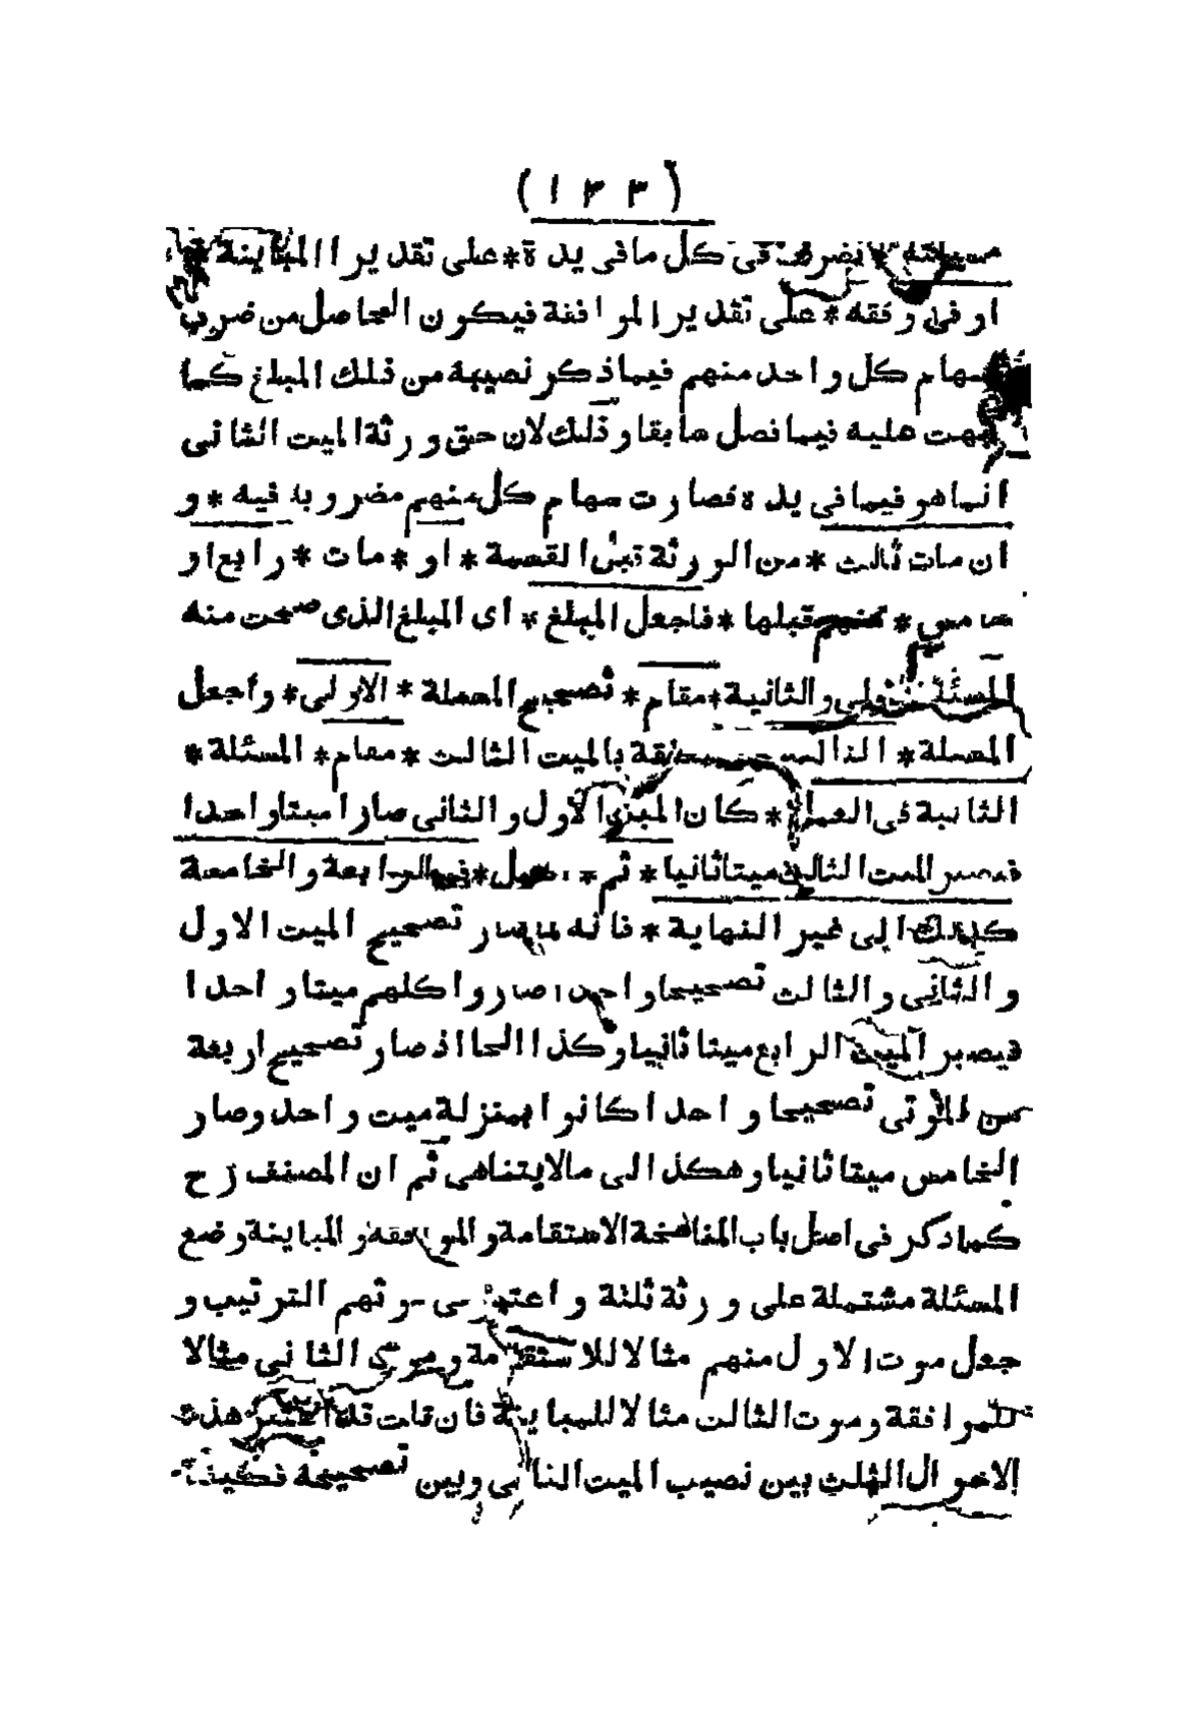 (١٣٣)
تضرب فى كل ما فى يده * على تقدير المباينة *
او فى وفقه * على تقدير الموافقة فيكون الحاصل من ضرب
سهام كل واحد منهم فيما ذكر نصيبه من ذلك المبلغ كما
عليه فيما فصل سابقا وذلك لان حق ورثة الميت الثانى
انما هو فيما فى يده فصارت سهام كل منهم مضروبة فيه * و
ان مات ثالث * من الورثة قبل القسمة * او * مات * رابع او
خامس * منهم قبلها * فاجعل المبلغ * اى المبلغ الذى صحت منه
المسئلة الاولى والثانية * مقام * تصحيح المسئلة * الاولى * واجعل
المسئلة * الثالثة المتعلقة بالميت الثالث * مقام * المسئلة *
الثانية فى العمل * كان الميت الاول والثانى صارا ميتا واحدا
فيصير الميت الثالث ميتا ثانيا * ثم * * فى الرابعة والخامسة
كذلك الى غير النهاية * فانه لما صار تصحيح الميت الاول
والثانى والثالث تصحيحا واحدا صاروا كلهم ميتا واحدا
فيصير الميت الرابع ميتا ثانيا وكذا الحال اذ صار تصحيح اربعة
من الموتى تصحيحا واحدا كانوا بمنزلة ميت واحد وصار
الخامس ميتا ثانيا وهكذا الى ما لا يتناهى ثم ان المصنف رح
كما ذكر فى اصل باب المناسخة الاستقامة والموافقة والمباينة وضع
المسئلة مشتملة على ورثة ثلثة واعتبر فى موتهم الترتيب و
جعل موت الاول منهم مثالا للاستقامة وموت الثانى مثالا
للموافقة وموت الثالث مثالا للمباينة فان قلت قد اعتبر هذه
الاحوال الثلث بين نصيب الميت الثانى وبين تصحيحه فكيف